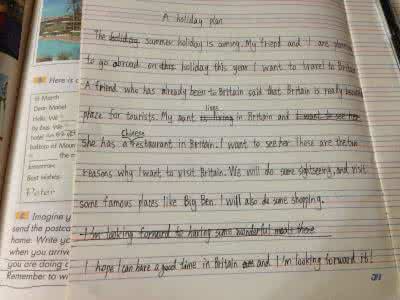 A holiday plan
The holiday summer holiday is coming. My friend and I are
to go abroad on this holiday this year I want to travel to Britain
A friend who has already been to Britain said that Britain is really
place for tourists. My aunt is living lives in Britain and I want to see her
She has a Chinese restaurant in Britain. I want to see her These are the two
reasons why I want to visit Britain. We will do some sightseeing, and visit
some famous places like Big Ben. I will also do some shopping.
I'm looking forward to having some wonderful meals there
I hope I can have a good time in Britain and I'm looking forward it!
B Here is
15 March
Dear Mabel
Hello. We
by bus. We
hotel
bottom of Mount
the
tomorrow.
Best wishes
Peter
C Imagine y
send the postcar
home. Write yo
when you arrive
you are doing c
Remember to wr